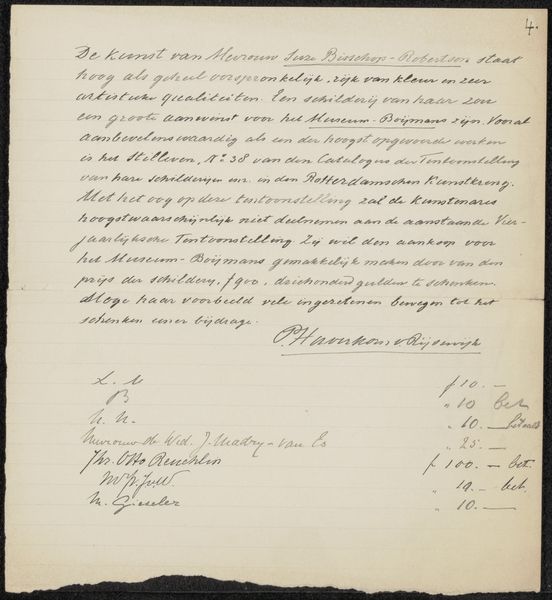 4.
De kunst van Mevrouw Suze Bisschop-Robertson staat
hoog als geheel oorspronkelijk, rijk van kleur en zeer
artistieke qualiteiten. Een schilderij van haar zou
een groote aanwinst voor het Museum-Boijmans zijn. Vooral
aanbevelenswaardig als een der hoogst opgevoerde werken
is het Stilleven, No. 38 van den Catalogus der Tentoonstelling
van hare schilderijen enz. in den Rotterdamschen Kunstkring.
Met het oog op deze tentoonstelling zal de kunstenares
hoogstwaarschijnlijk niet deelnemen aan de aanstaande Vier-
jaarlijksche Tentoonstelling. Zij wil den aankoop voor
het Museum-Boijmans gemakkelijk maken door van den
prijs der schilderij, f 900, driehonderd gulden te schenken.
Moge haar voorbeeld vele ingezetenen bewegen tot het
schenken eener bijdrage.
P. Haverkorn v Rijsewijk
L. M f 10.—
B " 10 bet
N. N. " 10.— betaald
Mevrouw de Wed. J. Madry-van Es " 25.—
Jhr. Otto Reuchlin f 100.— bet.
" 10.— bet.
M. Gieseler " 10.—